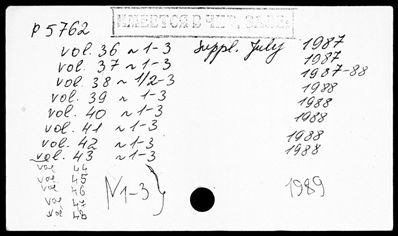 P 5762 ИМЕЕТСЯ В ЧИТ. ЗАЛЕ
vol. 36 N 1-3 Suppl. July 1987
vol. 37 N 1-3 1987
vol. 38 N 1/2-3 1987-88
vol. 39 N 1-3 1988
vol. 40 N 1-3 1988
vol. 41 N 1-3 1988
vol. 42 N 1-3 1988
vol. 43 N 1-3 1988
vol 44
vol 45
vol 46 N 1-3 } 1989
vol 47
vol 48